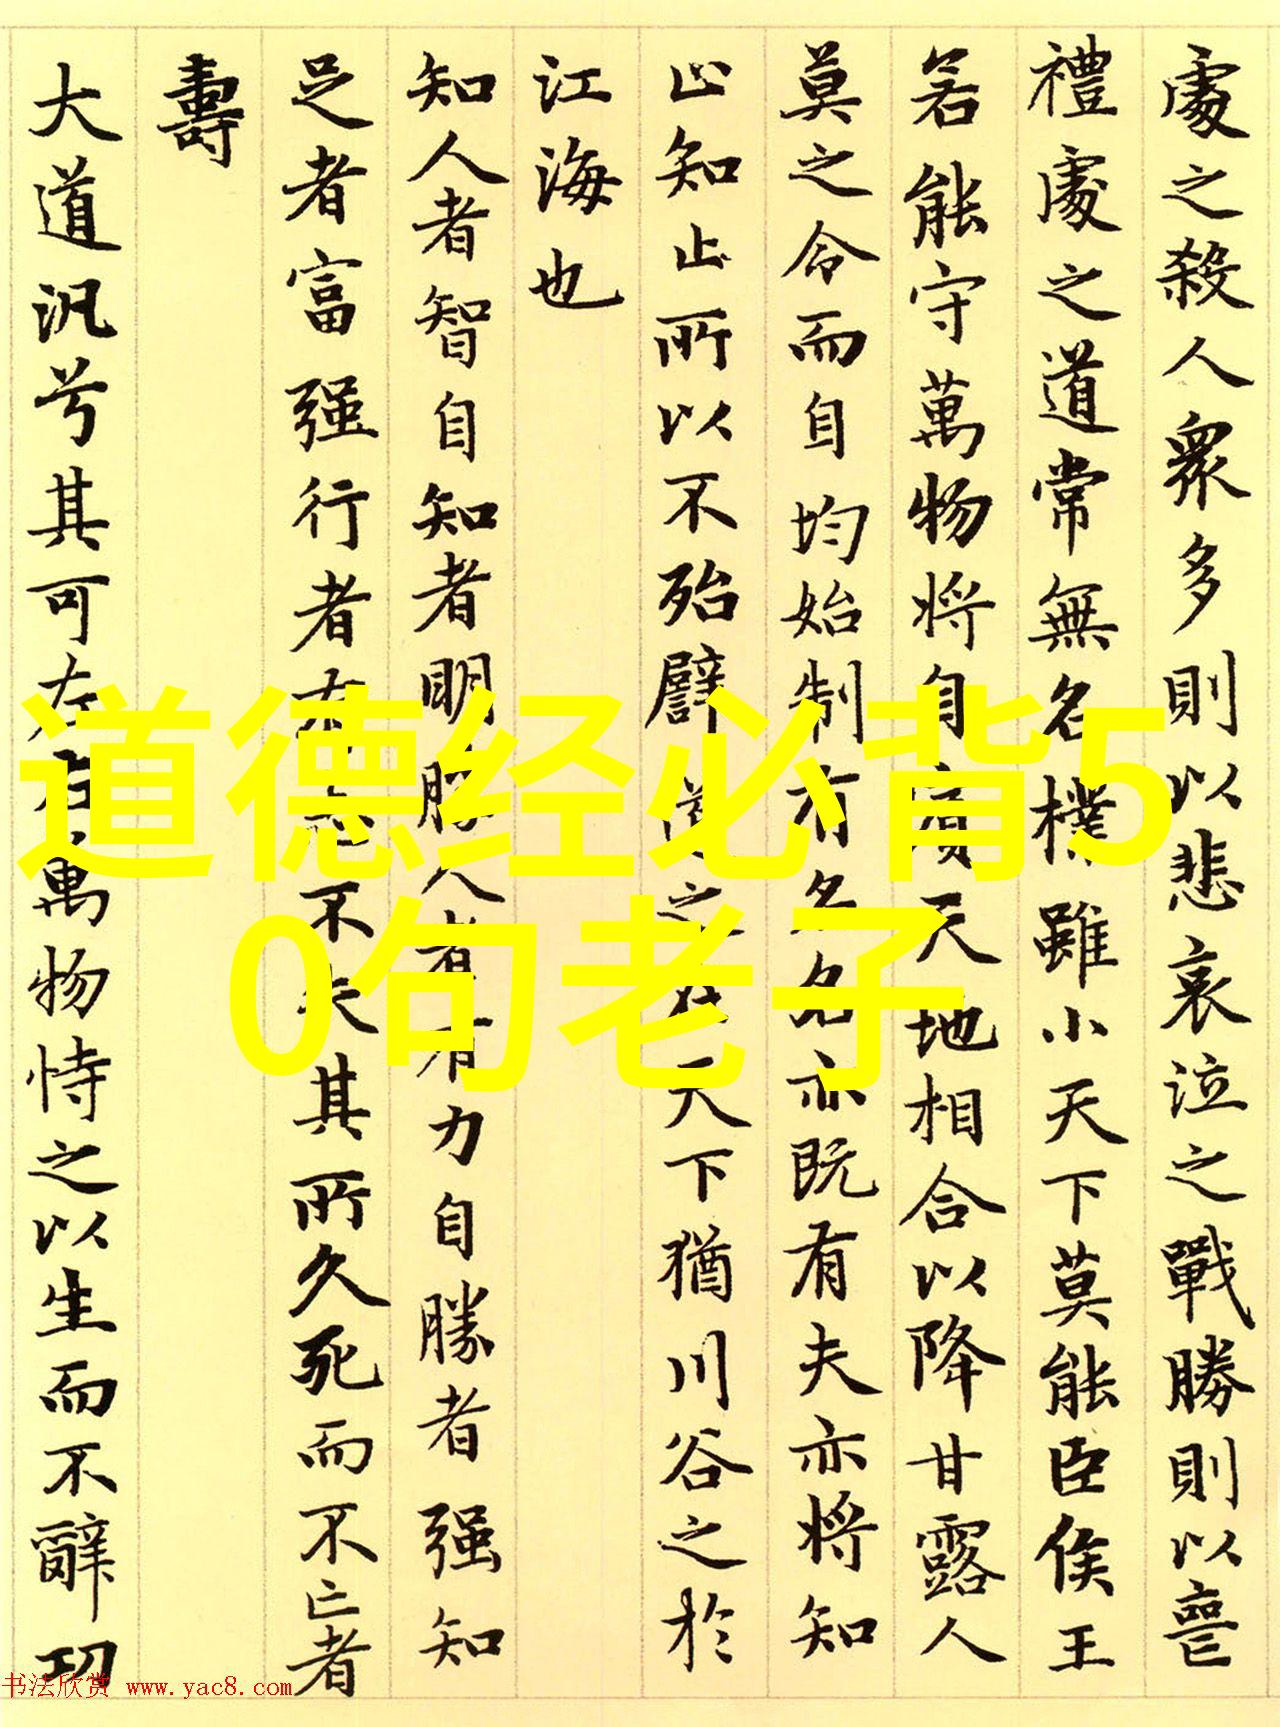 處之殺人衆多則以悲哀泣之戰勝則以喪
禮處之道常無名樸雖小天下莫能臣侯王
若能守萬物將自賓天地相合以降甘露人
莫之令而自均始制有名名亦既有夫亦將知
止知止所以不殆譬道之在天下猶川谷之於
江海也
知人者智自知者明勝人者有力自勝者强知
足者富强行者有志不失其所久死而不亡者
壽
大道汎兮其可左右萬物恃之以生而不辭功
道德经必背5
0句老子
书法欣赏 www.yac8.com